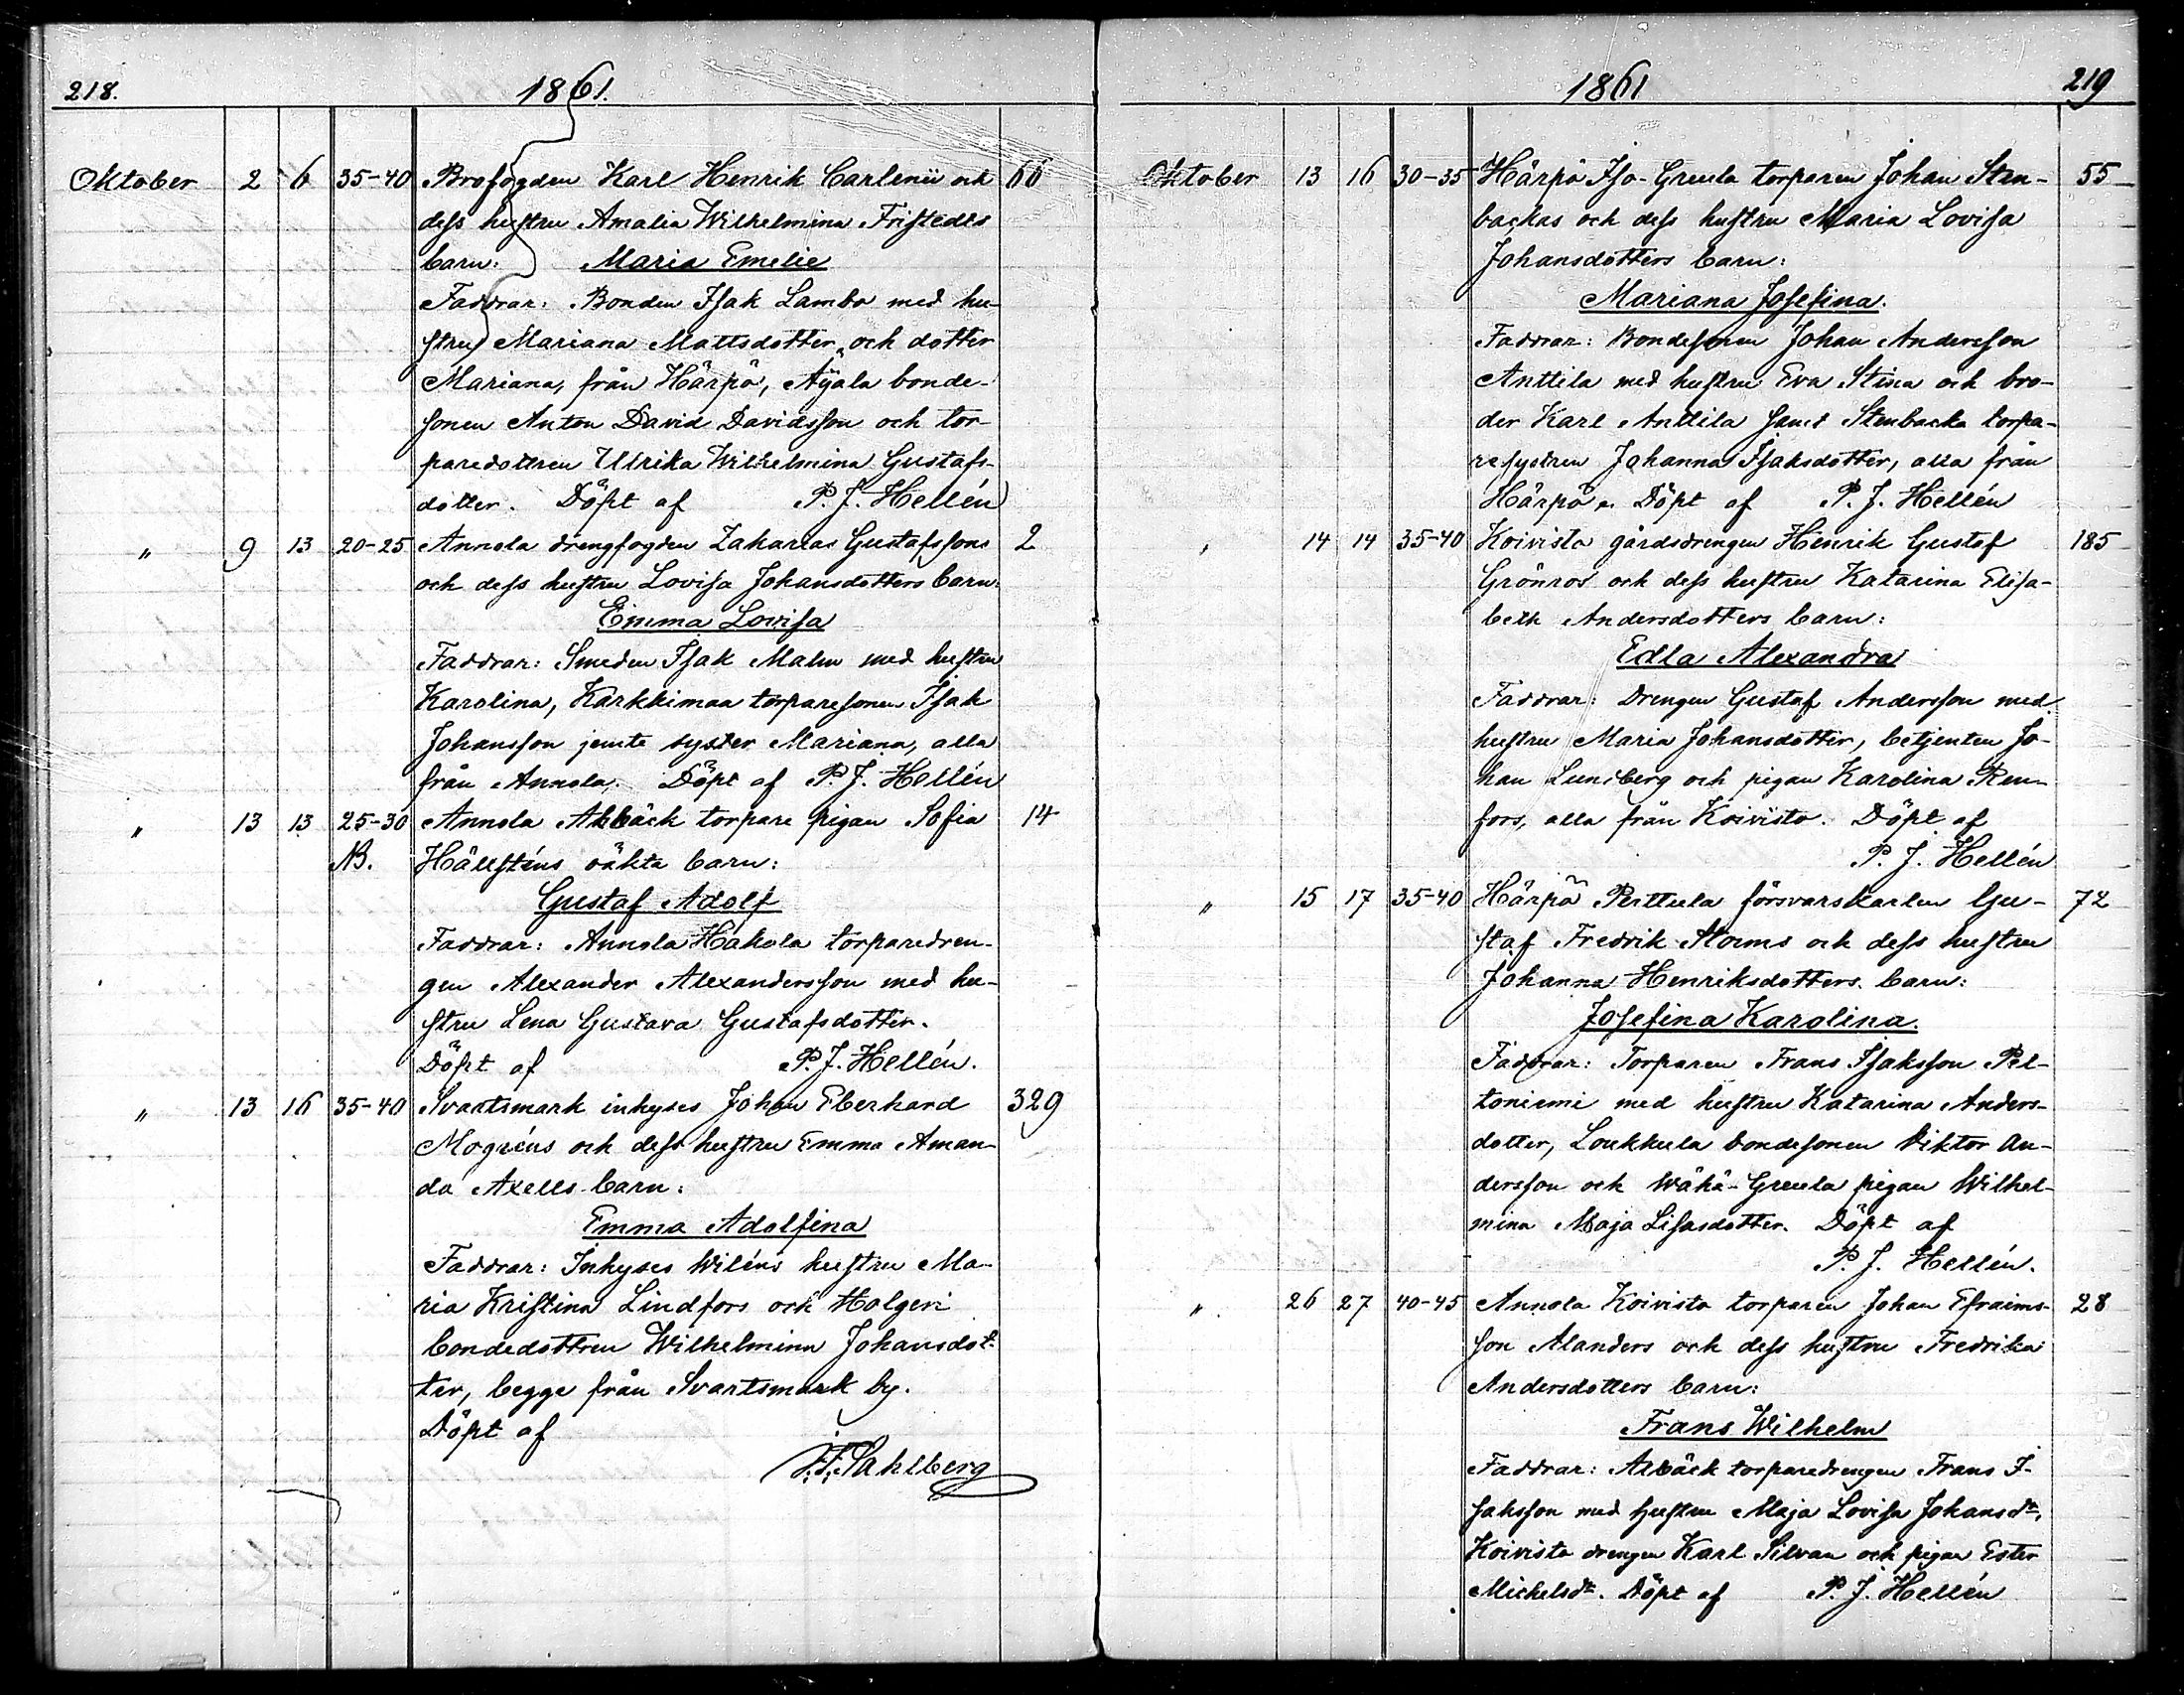 218. 1861.
Oktober 2 6 35-40 Brofogden Karl Henrik Carlenii och 66
dess hustru Amalia Wilhelmina Fristedts
barn: Maria Emelie
Faddrar: Bonden Isak Lambo med hu-
stru Mariana Mattsdotter och dotter
Mariana, från Härpö, Äyälä bonde-
sonen Anton David Davidsson och tor-
paredottren Ulrika Wilhelmina Gustafs-
dotter. Döpt af P. J. Hellén
" 9 13 20-25 Annola drengfogden Zakarias Gustafssons 2
och dess hustru Lovisa Johansdotters barn:
Emma Lovisa
Faddrar: Smeden Isak Malm med hustru
Karolina, Karkkimaa torparesonen Isak
Johansson jemte syster Mariana, alla
från Annola. Döpt af P. J. Hellén
" 13 13 25-30 Annola Albäck torpare pigan Sofia 14
NB. Hällsténs oäkta barn:
Gustaf Adolf
Faddrar: Annola Hakola torparedren-
gen Alexander Alexandersson med hu-
stru Lena Gustava Gustafsdotter.
Döpt af P. J. Hellén.
" 13 16 35-40 Svartsmark inhyses Johan Eberhard 329
Mogréns och dess hustru Emma Aman-
da Axells barn:
Emma Adolfina
Faddrar: Inhyses Wiléns hustru Ma-
ria Kristina Lindfors och Holgeri
bondedottren Wilhelmina Johansdot-
ter, begge från Svartsmark by.
Döpt af
F. F. Sahlberg
1861 219
Oktober 13 16 30-35 Härpö Iso-Greula torparen Johan Sten- 55
backas och dess hustru Maria Lovisa
Johansdotters barn:
Mariana Josefina.
Faddrar: Bondesonen Johan Andersson
Anttila med hustru Eva Stina och bro-
der Karl Anttila samt Stenbacka torpa-
resystren Johanna Isaksdotter, alla från
Härpö. Döpt af P. J. Hellén
" 14 14 35-40 Koivisto gårdsdrengen Henrik Gustaf 185
Grönros och dess hustru Katarina Elisa-
beth Andersdotters barn:
Edla Alexandra
Faddrar: Drengen Gustaf Andersson med
hustru Maria Johansdotter, betjenten Jo-
han Lundberg och pigan Karolina Ren-
fors, alla från Koivisto. Döpt af
P. J. Hellén
" 15 17 35-40 Härpö Perttula försvarskarlen Gu- 72
staf Fredrik Storms och dess hustru
Johanna Henriksdotters barn:
Josefina Karolina.
Faddrar: Torparen Frans Isaksson Pel-
toniemi med hustru Katarina Anders-
dotter, Loukkula bondesonen Viktor An-
dersson och Wähä-Greula pigan Wilhel-
mina Maja Lisasdotter. Döpt af
P. J. Hellén.
" 26 27 40-45 Annola Koivisto torparen Johan Efraims- 28
son Alanders och dess hustru Fredrika
Andersdotters barn:
Frans Wilhelm
Faddrar: Albäck torparedrengen Frans I-
saksson med hustru Maja Lovisa Johansdr,
Koivisto drengen Karl Silvan och pigan Ester
Michelsdr. Döpt af P. J. Hellén